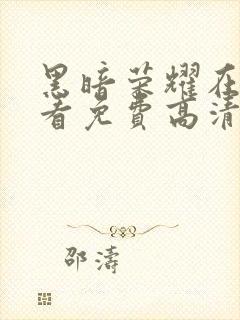 黑暗荣耀在
看免费高清
邵涛